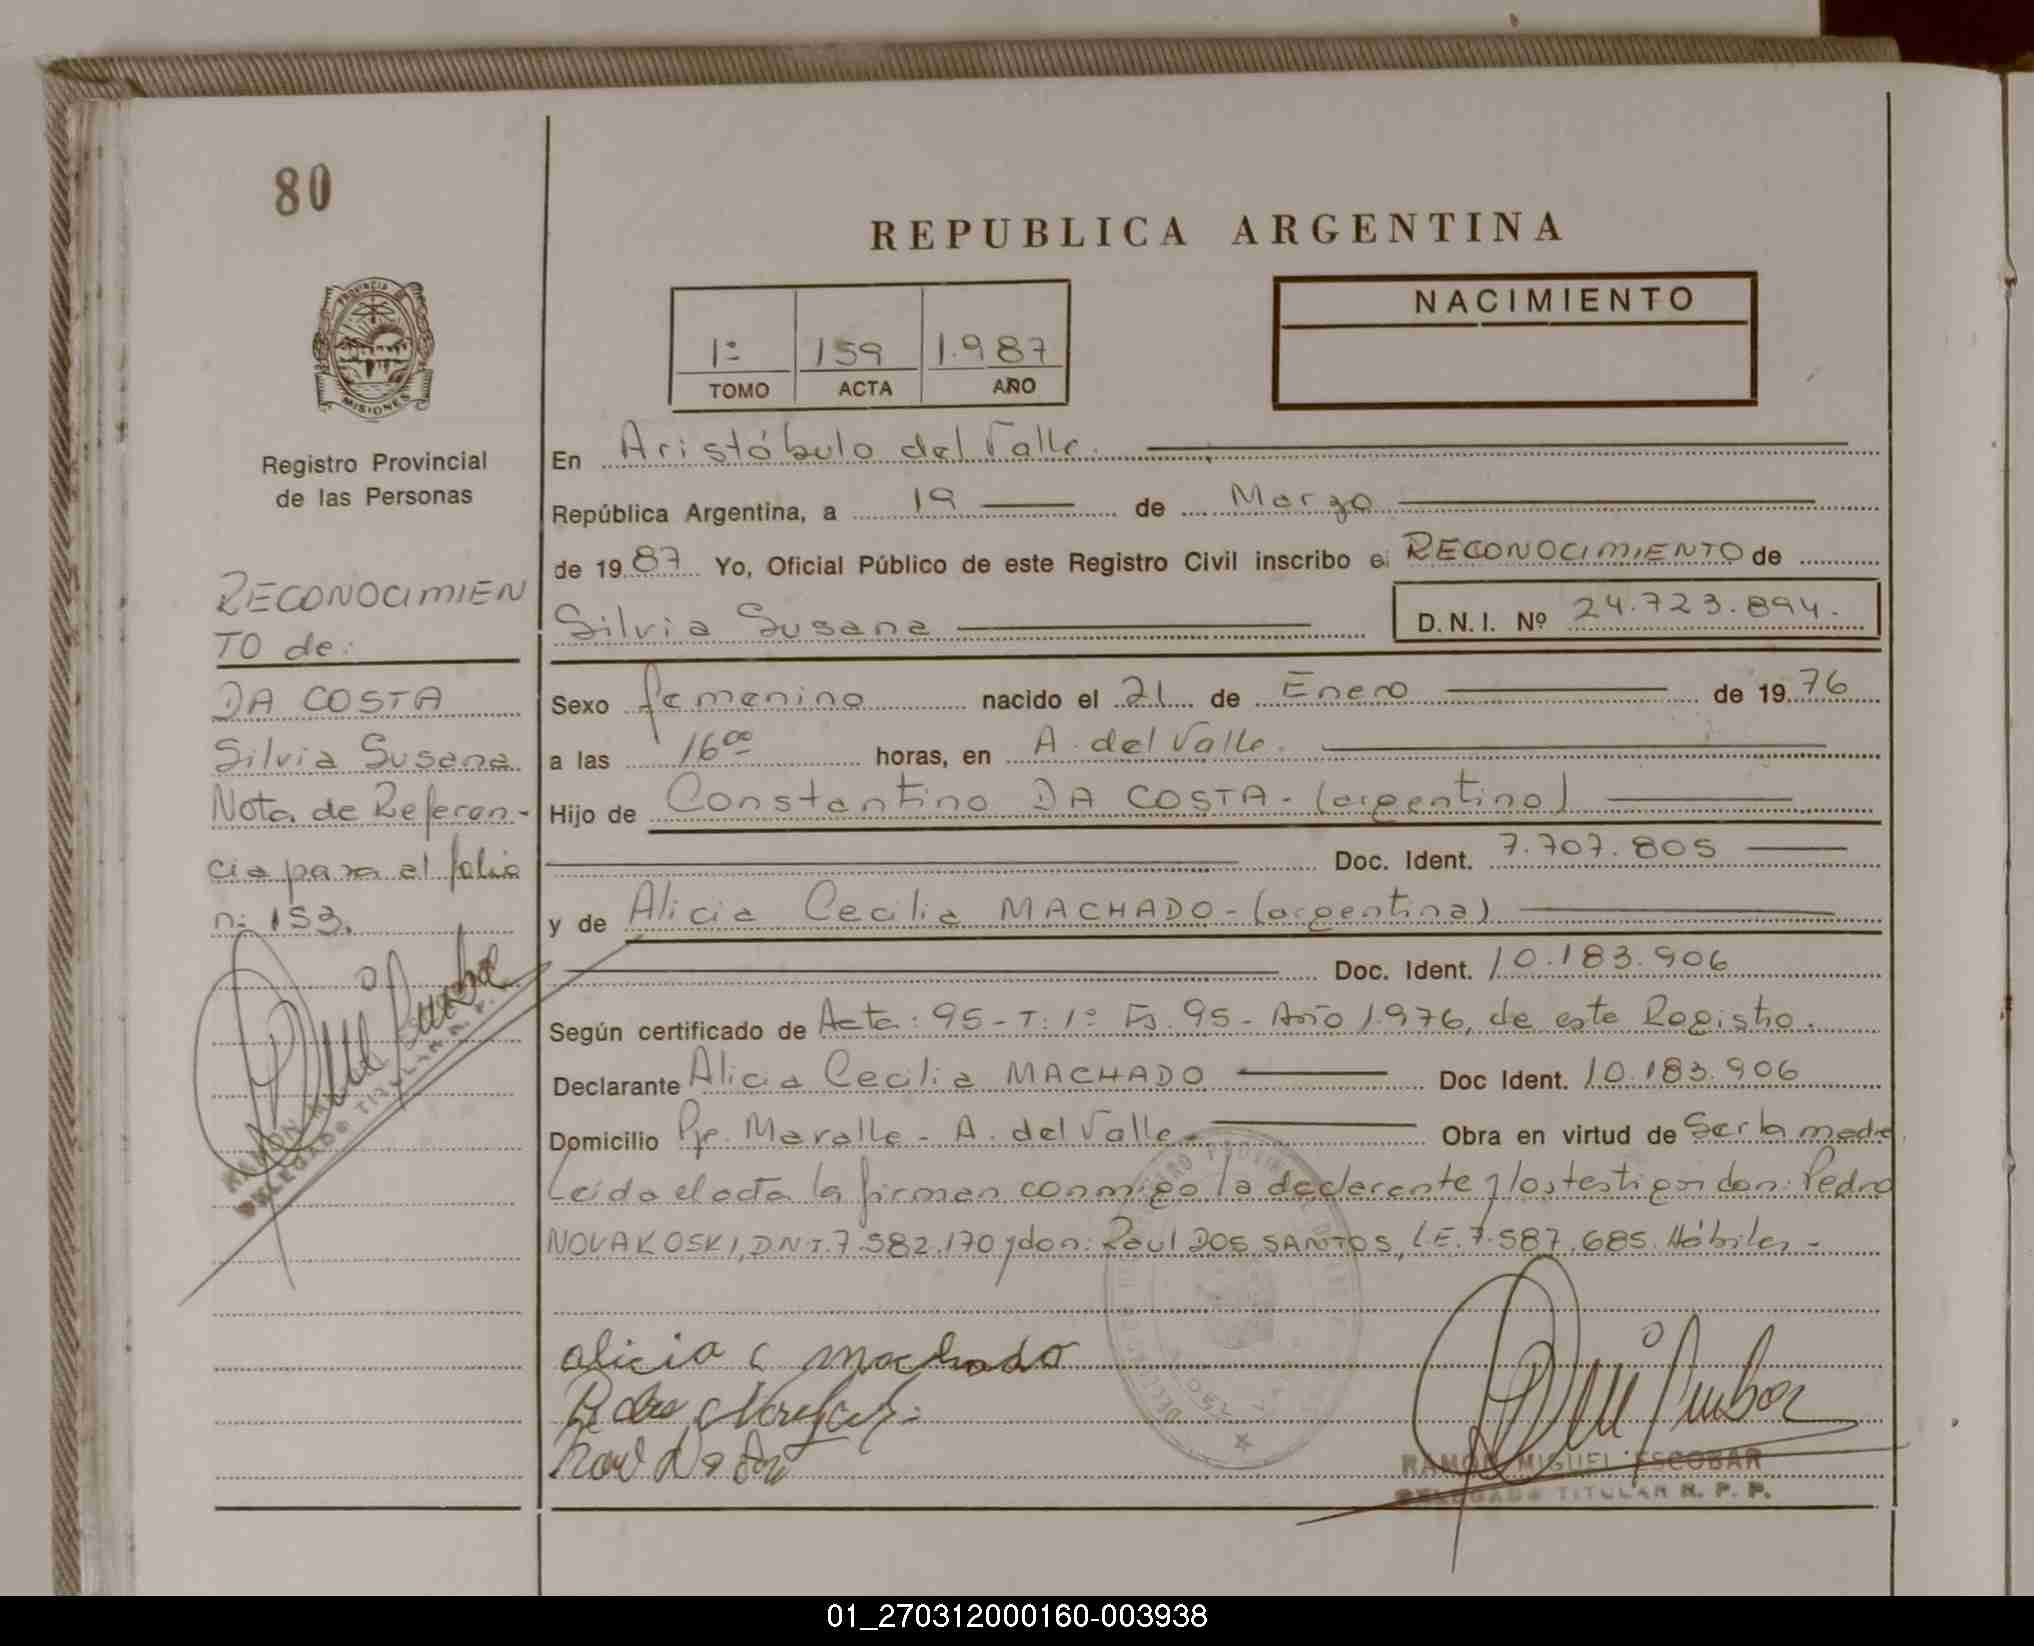 80
REPUBLICA ARGENTINA
PROVINCIA DE
MISIONES
Registro Provincial
de las Personas
1º 159 1.987
TOMO ACTA AÑO
NACIMIENTO
En Aristóbulo del Valle.
República Argentina, a 19 de Marzo
de 1987 Yo, Oficial Público de este Registro Civil inscribo el RECONOCIMIENTO de
Silvia Susana D.N.I. Nº 24.723.894.
Sexo femenino nacido el 21 de Enero de 1976
a las 16 00 horas, en A. del Valle.
Hijo de Constantino DA COSTA - (argentino)
Doc. Ident. 7.707.805
y de Alicia Cecilia MACHADO - (argentina)
Doc. Ident. 10.183.906
Según certificado de Acta: 95 - T: 1º Fº 95 - Año 1.976, de este Registro.
Declarante Alicia Cecilia MACHADO Doc Ident. 10.183.906
Domicilio Pje. Maralle - A. del Valle - Obra en virtud de Ser la madre
Leida el acta la firman conmigo la declarante y los testigos don: Pedro
NOVAKOSKI, DNI. 7.582.170 y don: Raúl DOS SANTOS, L.E. 7.587.685. Hábiles -
alicia c machado
RAMON MIGUEL ESCOBAR
DELEGADO TITULAR R. P. P.
RECONOCIMIEN
TO de:
DA COSTA
Silvia Susana
Nota de Referen-
cia para el folio
nº 153.
RAMON MIGUEL ESCOBAR
DELEGADO TITULAR R. P. P.
01_270312000160-003938